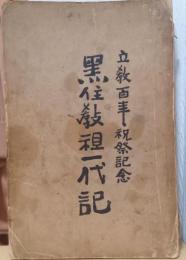 立教百年祝祭記念
黒住教祖一代記